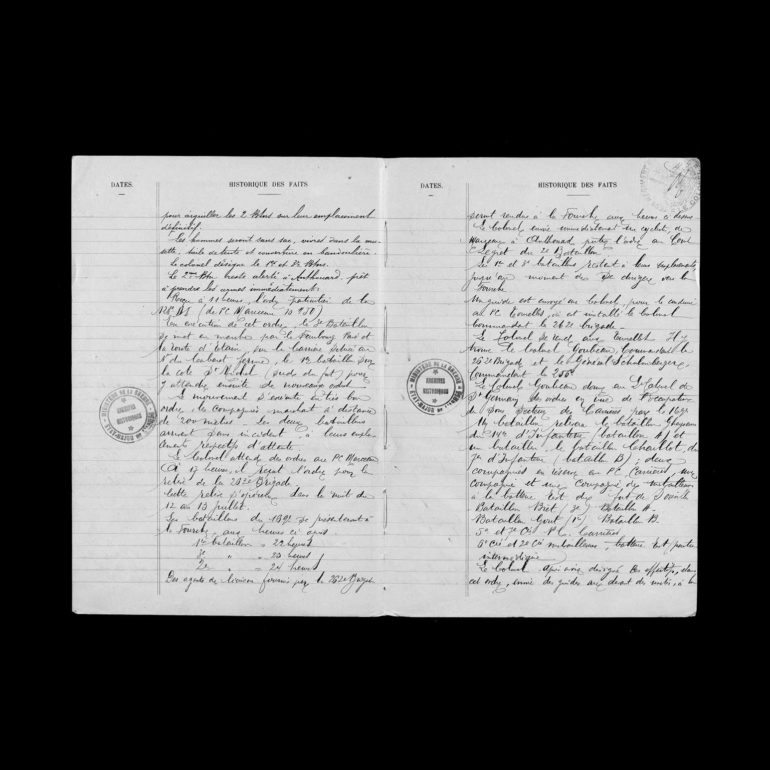 DATES.
HISTORIQUE DES FAITS
pour aiguiller les 2 Btons sur leur emplacement
définitif.
Les hommes seront sans sac, vivres dans la mu-
sette, toile de tente et couverture en bandoulière.
Le colonel désigne le 1er et 3e Btons.
Le 2me Bton reste alerté à Anthouard prêt
à prendre les armes immédiatement.
Reçu à 11 heures, l'ordre particulier de la
(du PC Marceau
En exécution de cet ordre, le 3e Bataillon
se met en marche par le Faubourg Pavé et
la route d'Etain, par la Carrière
N. du Cabaret (ferme), le 1er bataillon sur
la côte St Michel (sude du fort) pour
y attendre ensuite de nouveaux ordres.
Le mouvement s'exécute en très bon
ordre, les compagnies marchant à distance
de 200 mètres. Les deux bataillons
arrivent sans incident, à leurs empla-
cements respectifs d'attente.
Le Colonel attend des ordres au PC Marceau
A 17 heures, il reçoit l'ordre pour la
relève de la 262e Brigade
Cette relève s'opérera dans la nuit du
12 au 13 juillet.
Les bataillons du 169e se présenteront à
la Fourche, aux heures ci après
1er bataillon = 22 heures
3e " = 23 heures
2e " = 24 heures
Des agents de liaison fournis par la 262e Brigade
DATES.
HISTORIQUE DES FAITS
seront rendus à la Fourche aux heures ci dessus
Le Colonel envoie immédiatement un cycliste, de
Marceau à Anthouard porter l'ordre au Cont
du 2e Bataillon.
Le 1er et 3e bataillons restent à leurs emplacements
jusqu'au moment de se diriger vers la
Fourche
Un guide est envoyé au Colonel pour le conduire
au PC où est installé le Colonel
Commandant la 262e brigade.
Le Colonel se rend aux
trouve le Colonel Commandant la
262e Brigade et le Général
Commandant la
Le Colonel donne au Lt Colonel de
St Germain des ordres en vue de l'occupation
du Sous Secteur des Carrières par le 169e
Un bataillon relèvera le bataillon
du d'Infanterie (bataillon A) et
un bataillon, le bataillon du
d'Infanterie (bataillon B); deux
compagnies en réserve au PC Carrières, une
compagnie et une compagnie de mitrailleuses
à la batterie Est du fort de Souville
Bataillon (3e) Bataillon A.
Bataillon (1er) Bataillon B.
5e et 7e Cies P.C. Carrières
6e Cie et 2e Cie mitrailleuses, batterie Est, position
intermédiaire
Le Colonel après avoir désigné les effectifs, dans
cet ordre, envoie des guides au devant des unités, à la
MINISTÈRE DE LA GUERRE
ARCHIVES
HISTORIQUES
ÉTAT-MAJOR DE L'ARMÉE
MINISTÈRE DE LA GUERRE
ARCHIVES
HISTORIQUES
ÉTAT-MAJOR DE L'ARMÉE